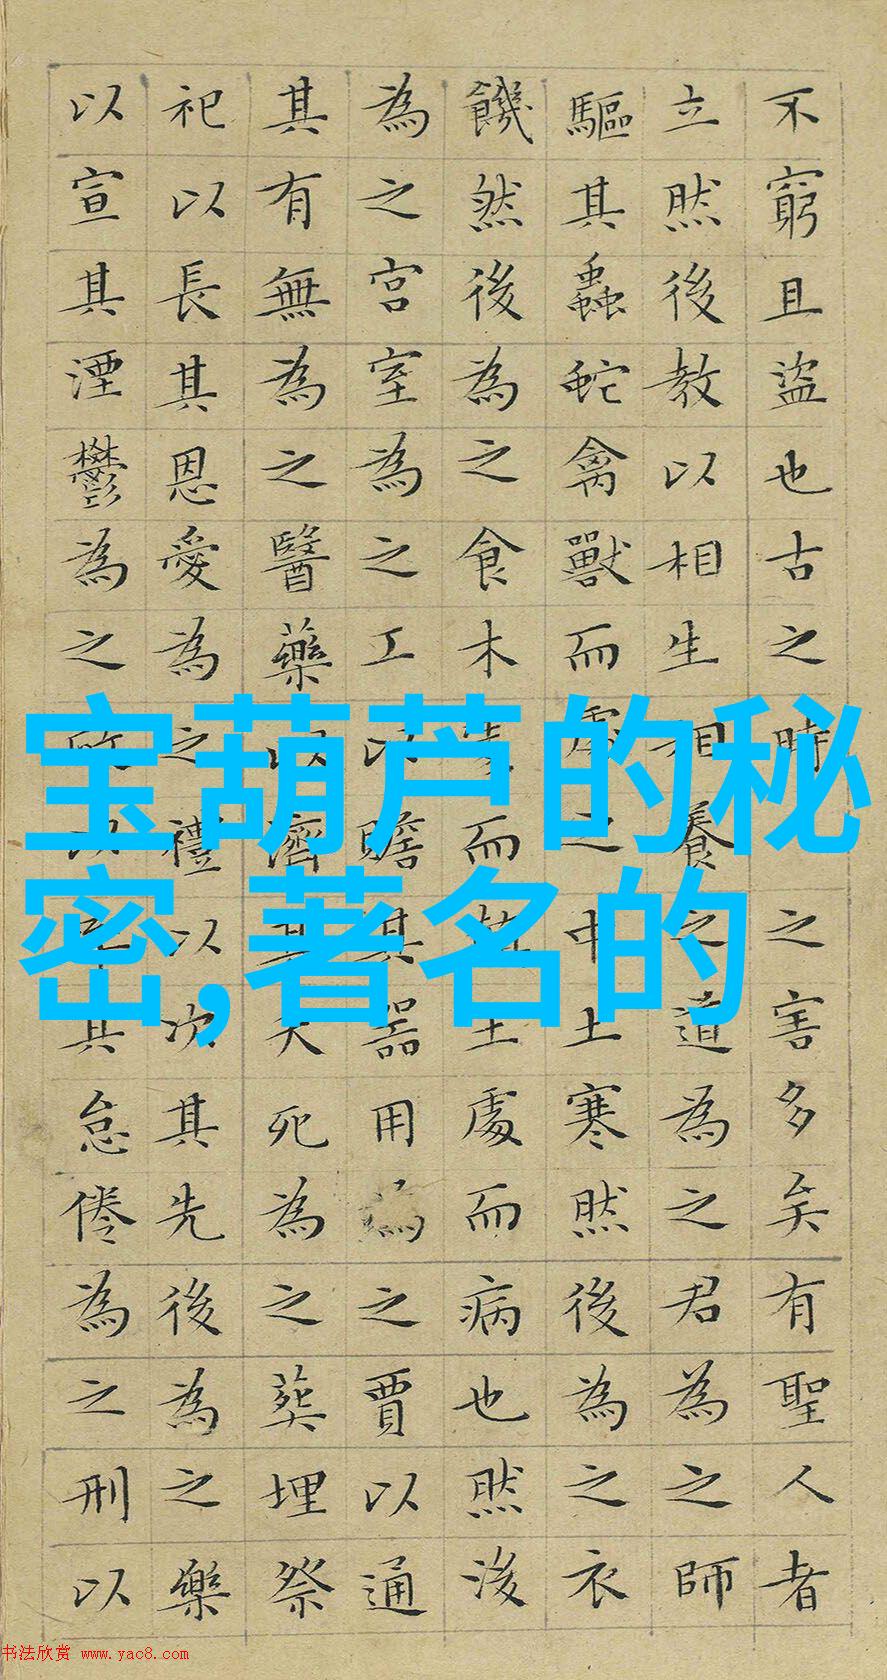 不窮且盜也古之時之害多矣有聖人者
立然後教以相生相養之道為之君為之師
驅其蟲蛇禽獸而處之中土寒然後為之衣
饑然後為之食木處而土處而病也然後
為之宮室為之工以贍其器用為之賈以通
其有無為之醫藥以濟其夭死為之葬埋祭
祀以長其恩愛為之禮以次其先後為之樂
以宣其湮鬱為之以其怠倦為之刑以
宝葫芦的秘
密,著名的
书法欣赏 www.yac8.com